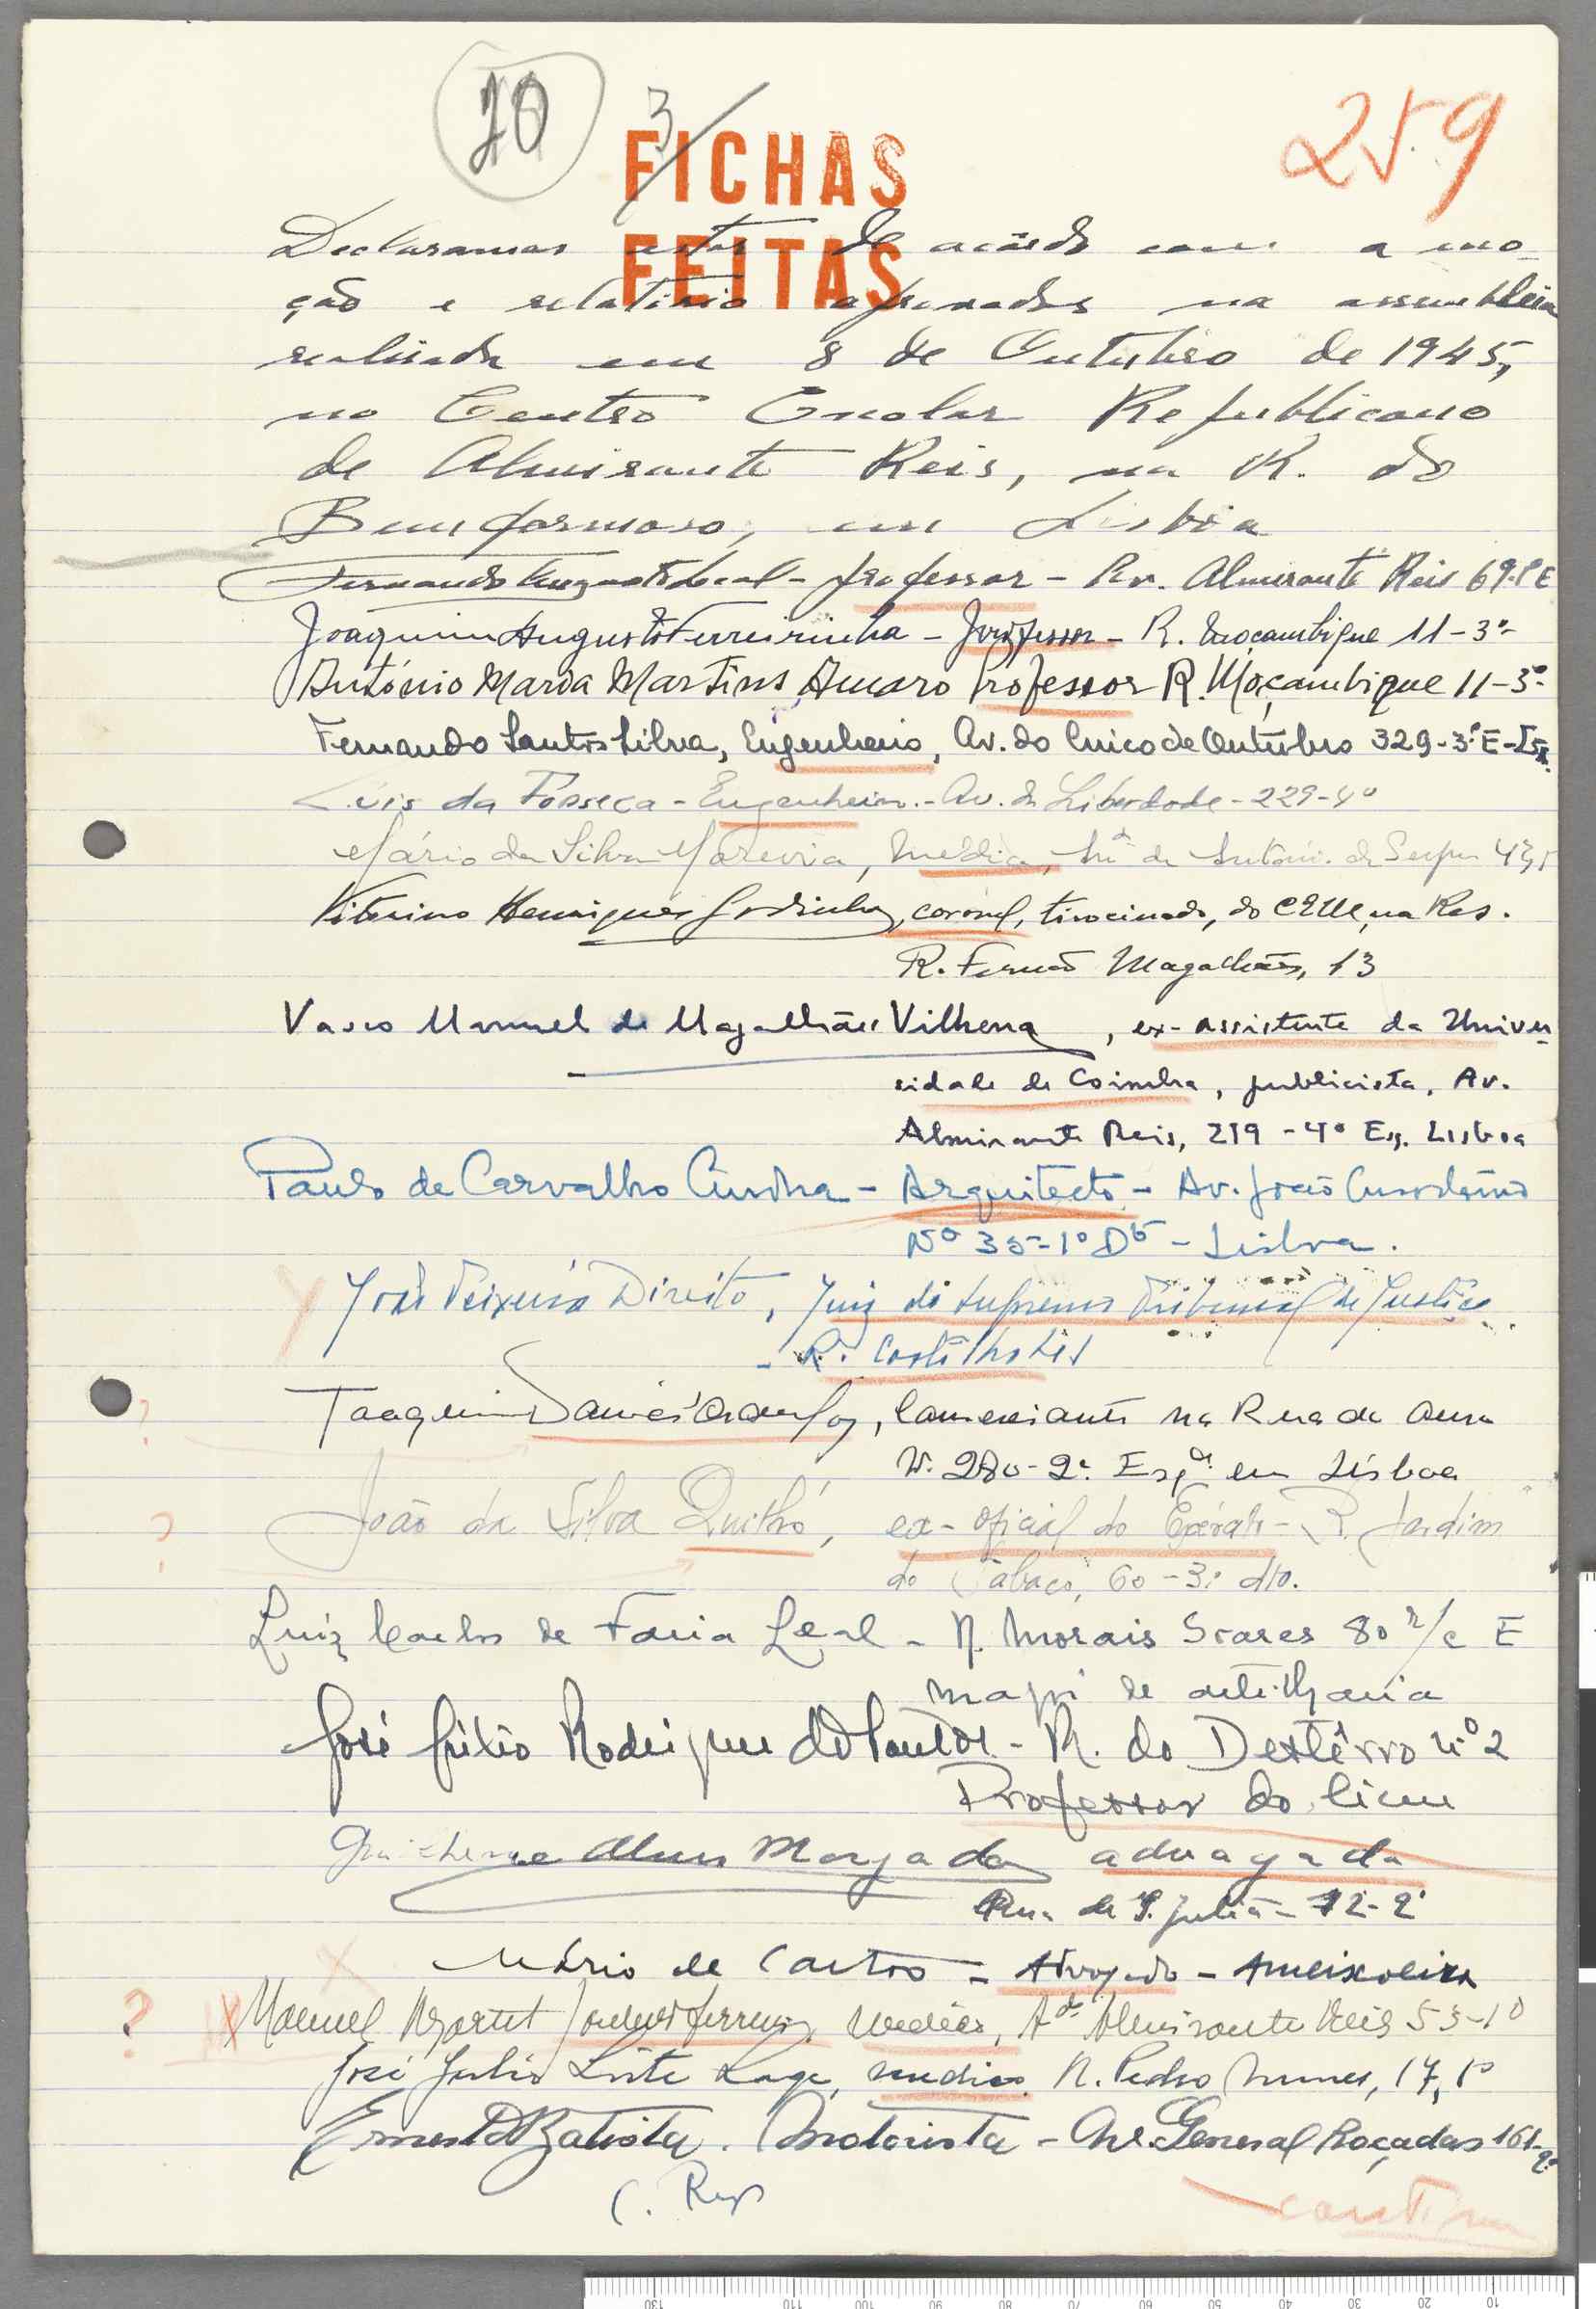 20
3
259
FICHAS
FEITAS
Declaramos estar de acôrdo com a mo-
ção e relatório aprovados na assembleia
realisada em 8 de Outubro de 1945,
no Centro Escolar Republicano
de Almirante Reis, na R. do
Bemformoso, em Lisboa
Fernando Augusto Leal - professor - Av. Almirante Reis 69
Joaquim Augusto Ferreirinha - Professor - R. Moçambique 11-3º
António Maria Martins Amaro Professor R. Moçambique 11-3º
Fernando Santos Silva, Engenheiro, Av. do Cinco de Outubro 329-3º E-
Luis da Fonseca - Engenheiro - Av. da Liberdade - 229-4º
Mário da Silva Moreira, médico, de António de Serpa
Vitorino Henriques Godinho, coronel, tirocinado, do CEM, na Res.
R. Fernão Magalhães, 13
Vasco Manuel de Magalhães Vilhena, ex-assistente da Univer-
sidade de Coimbra, publicista, Av.
Almirante Reis, 219 - 4º Esq. Lisboa
Paulo de Carvalho Cunha - Arquitecto - Av. João Crisóstomo
Nº 35-1º Dto - Lisboa.
José Teixeira Direito, Juiz do Supremo Tribunal de Justiça
- R. Castilho
Joaquim, Comerciante na Rua do Ouro
N. 280-2º. Esqdo. em Lisboa
João da Silva Quilhó, ex-oficial do Exército - R. Jardim
do Tabaco, 60-3º dto.
Luiz Carlos de Faria Leal - R. Morais Soares 80 r/c E
major de artilharia
José Júlio Rodrigues dos Santos - R. do Destêrro nº 2
Professor do liceu
Guilherme Alves Morgado advogado
Rua de S. Julião - 72-2º
Mário de Castro - Advogado - Ameixoeira
Manuel Ferreira, médico, Ada Almirante Reis 53-1º
José Julio Leite Lage, médico R. Pedro Nunes, 17, 1º
Ernesto Batista. Motorista - Av. General Roçadas 161-
C. Rep
continua